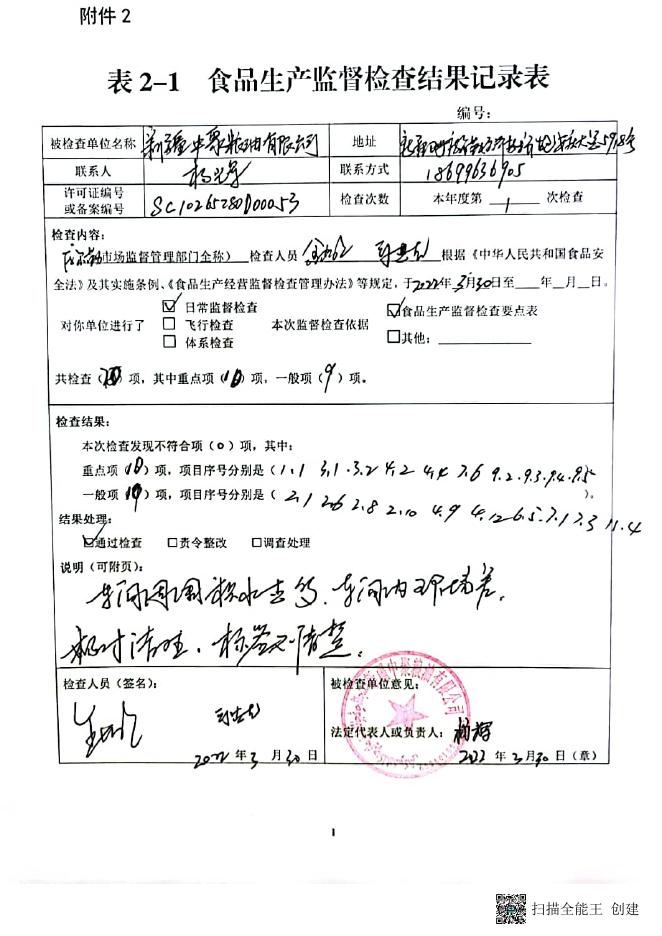 附件2
表 2-1 食品生产监督检查结果记录表
编号：
被检查单位名称 新疆中聚粮油有限公司 地址
联系人 联系方式 18699636905
许可证编号或备案编号 SC10265280D00053 检查次数 本年度第 1 次检查
检查内容：
市场监督管理部门全称）检查人员 根据《中华人民共和国食品安
全法》及其实施条例、《食品生产经营监督检查管理办法》等规定，于2022年3月30日至 年 月 日。
☑ 日常监督检查 ☑食品生产监督检查要点表
对你单位进行了 □ 飞行检查 本次监督检查依据
□ 体系检查 □其他：
共检查（）项，其中重点项（10）项，一般项（9）项。
检查结果：
本次检查发现不符合项（0）项，其中：
重点项（10）项，项目序号分别是（1.1 3.1.3.2 4.2 4.4 7.6 9.2.9.3.9.4.9.5
一般项（）项，项目序号分别是（2.1 2.6 2.8 2.10 4.9 4.12 6.5.7.1 7.3 11.4）。
结果处理：
☑通过检查 □责令整改 □调查处理
说明（可附页）：
车间周围积水 车间内环境差，
清楚。
检查人员（签名）： 被检查单位意见：
法定代表人或负责人：
2022 年 3 月 30 日 2022 年 3 月 30 日（章）
1
扫描全能王 创建